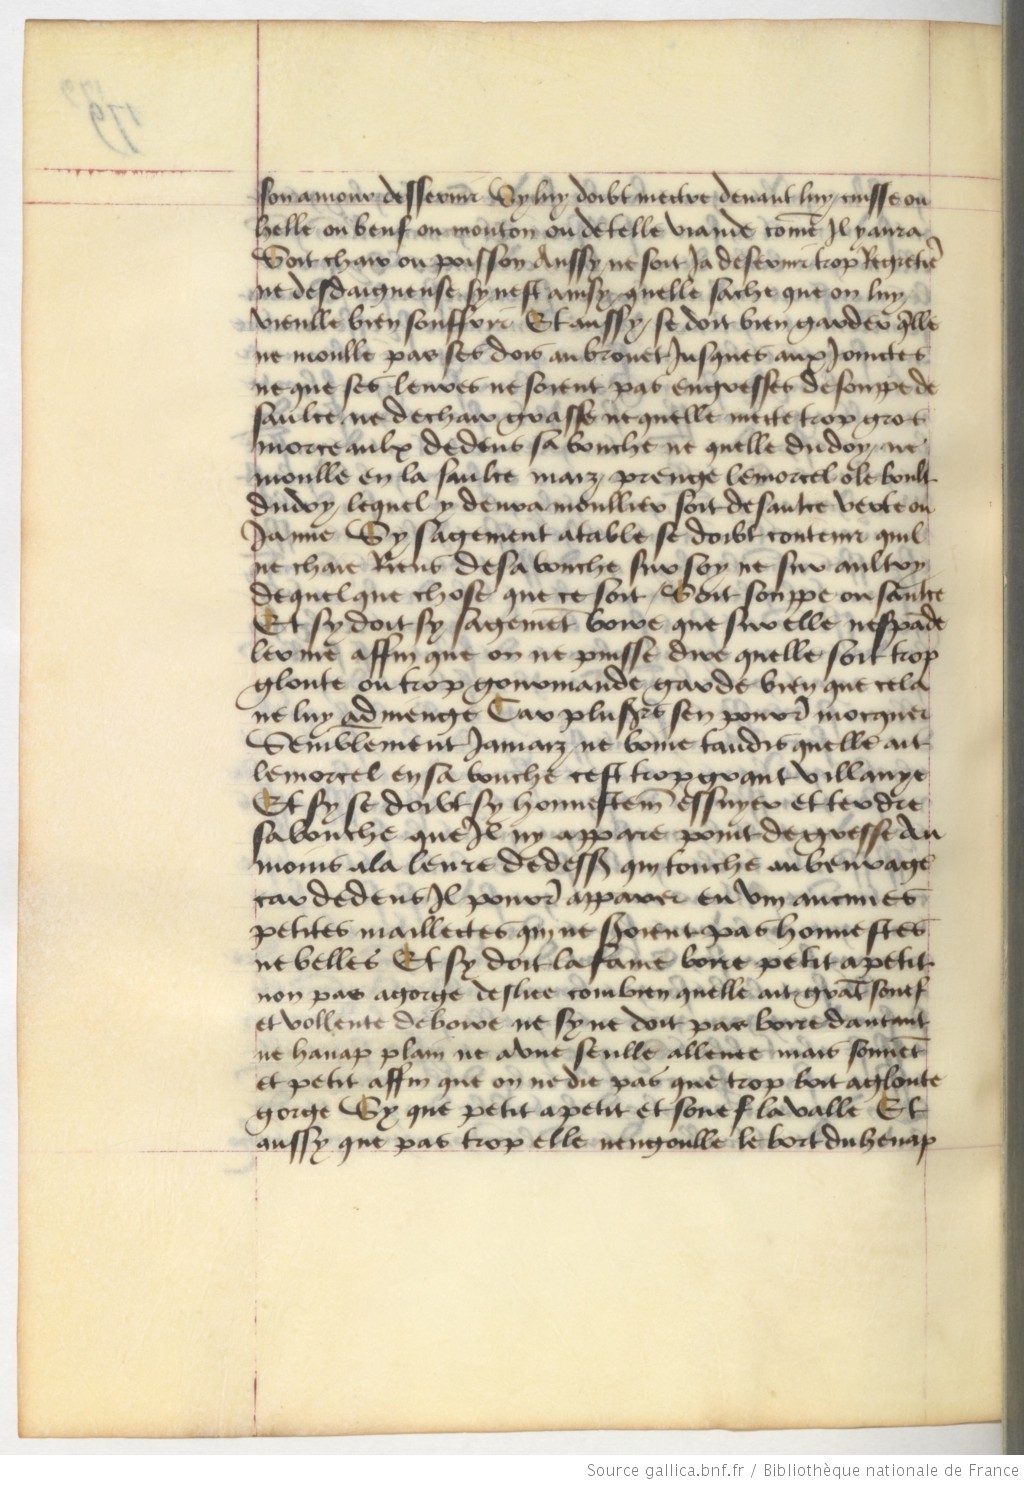 son amour desservir Sy luy doibt mectre devant luy cuisse ou
helle ou beuf ou mouton ou de telle viande comē Il y aura
Soit chair ou poisson Aussy ne soit Ja de servir trop
ne desdaigneuse sy nest ainsy quelle sache que on luy
vieulle bien souffrir Et aussy se doit bien garder q̄lle
ne moulle pas ses dois au brouet Jusques aux Joinctes
ne que ses leures ne soient pas engresses de souppe de
saulce ne de chair grasse ne quelle mecte trop gros
morceaulx dedens sa bouche ne quelle du doy ne
moulle en la saulce maiz prenge le morcel o le boult
du doy lequel y deura moullier soit de saulce verte ou
Jaune Sy sagement a table se doibt contenir quil
ne chaie Riens de sa bouche sur soy ne sur aultruy
de quelque chose que ce soit Soit souppe ou saulce
Et sy doit sy sagemēt boire que sur elle nespāde
le vin affin que on ne puisse dire quelle soit trop
gloute ou trop gourmande garde bien que cela
ne luy admenge Car plusrs sen pourr̄ mocquer
Semblement Jamaiz ne boiue tandis quelle ait
le morcel en sa bouche cest trop grant villanye
Et sy se doibt sy honnestem̄ essuyer et terdre
sa bouche que Il ny appaire point de gresse Au
moins a la leure de dess qui touche au beuvage
car dedens Il pourr̄ apparer en vin aucunes
petites maillectes qui ne soient pas honnestes
ne belles Et sy doit la fame boire petit a petit
non pas a gorge desliee combien quelle ait grāt souef
et vollente de boire ne sy ne doit pas boire dautant
ne hanap plain ne a vne seulle allenee mais souuēt
et petit affin que on ne die pas que trop boit a gloute
gorge Sy que petit a petit et souef lavalle Et
aussy que pas trop elle nengoulle le bort du henap
Source gallica.bnf.fr / Bibliothèque nationale de France